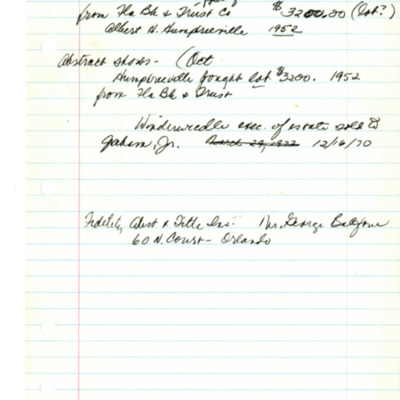 from Fla Bk & Trust Co $3200.00 (lot?)
Albert H. Humphreville 1952
Abstract shows - (Oct
Humphreville bought lot $3200. 1952
from Fla Bk & Trust
Winderweedle exec. of estate sold to
Jr. March 29, 1972 12/16/70
Fidelity Abst & Title Ins. Mr. George Balfour
60 N. Court - Orlando